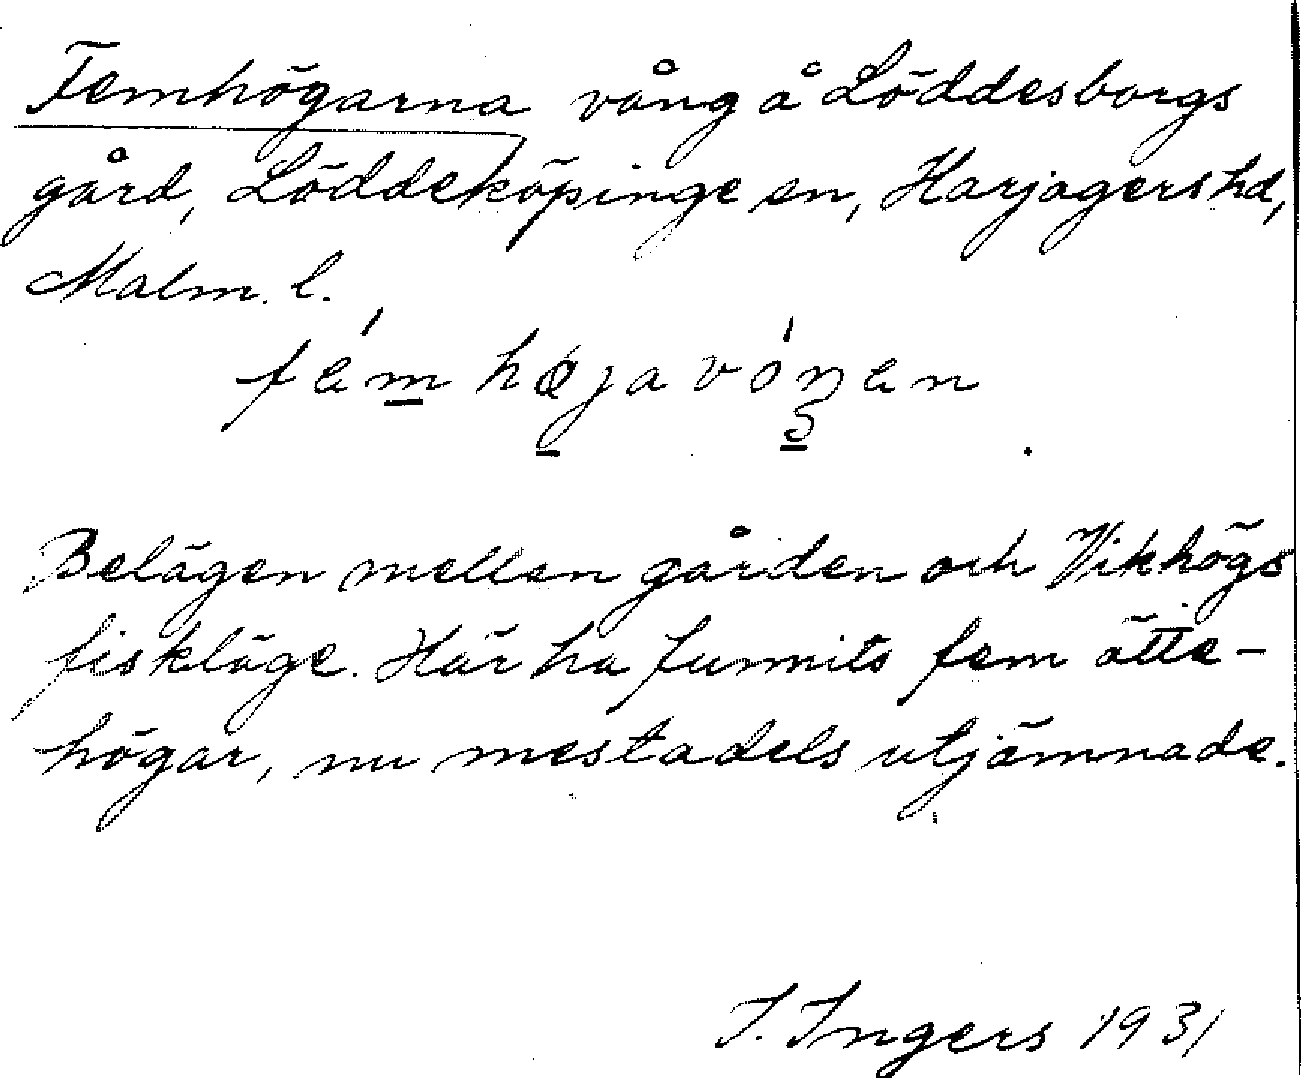 Femhögarna vång å Löddesborgs
gård, Löddeköpinge sn, Harjagers hd,
Malm. l.
fémhøjavóŋen
Belägen mellan gården och Vikhögs
fiskläge. Här ha funnits fem ätte-
högar, nu mestadels utjämnade.
I. Ingers 1931